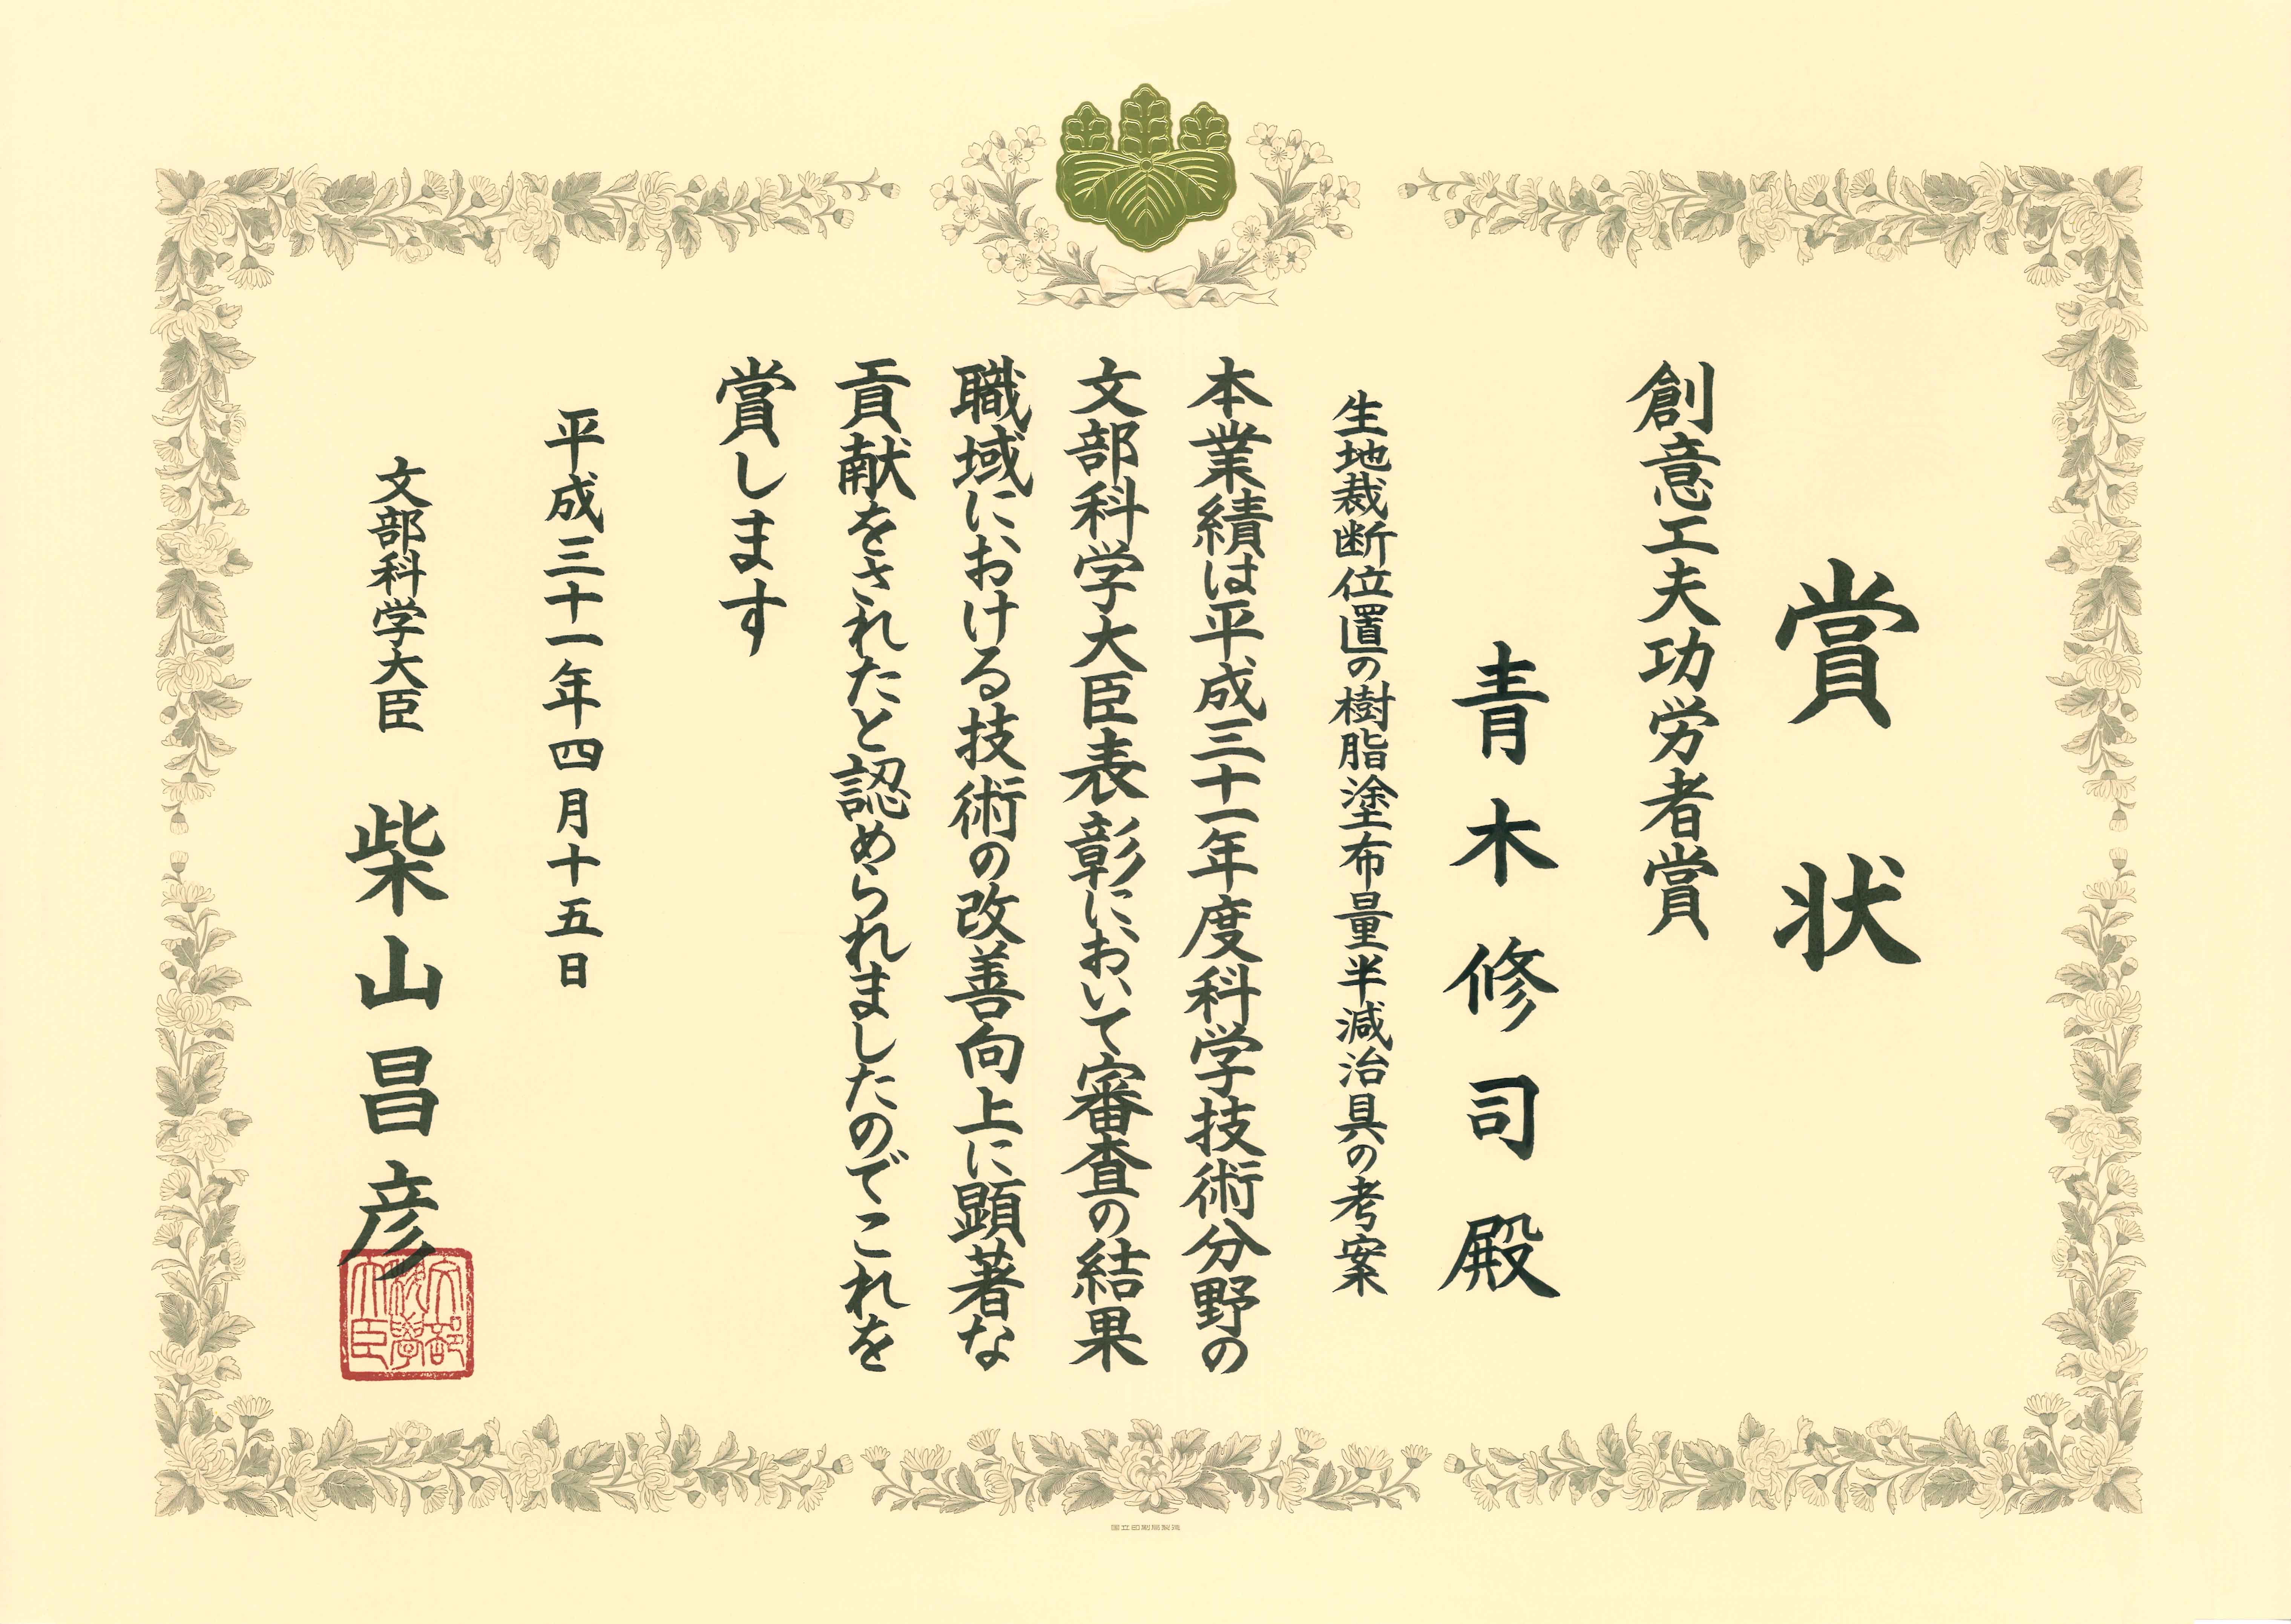 賞状
創意工夫功労者賞
青木修司殿
生地裁断位置の樹脂塗布量半減治具の考案
本業績は平成三十一年度科学技術分野の
文部科学大臣表彰において審査の結果
職域における技術の改善向上に顕著な
貢献をされたと認められましたのでこれを
賞します
平成三十一年四月十五日
文部科学大臣 柴山昌彦
文部
科學
大臣
国立印刷局製造